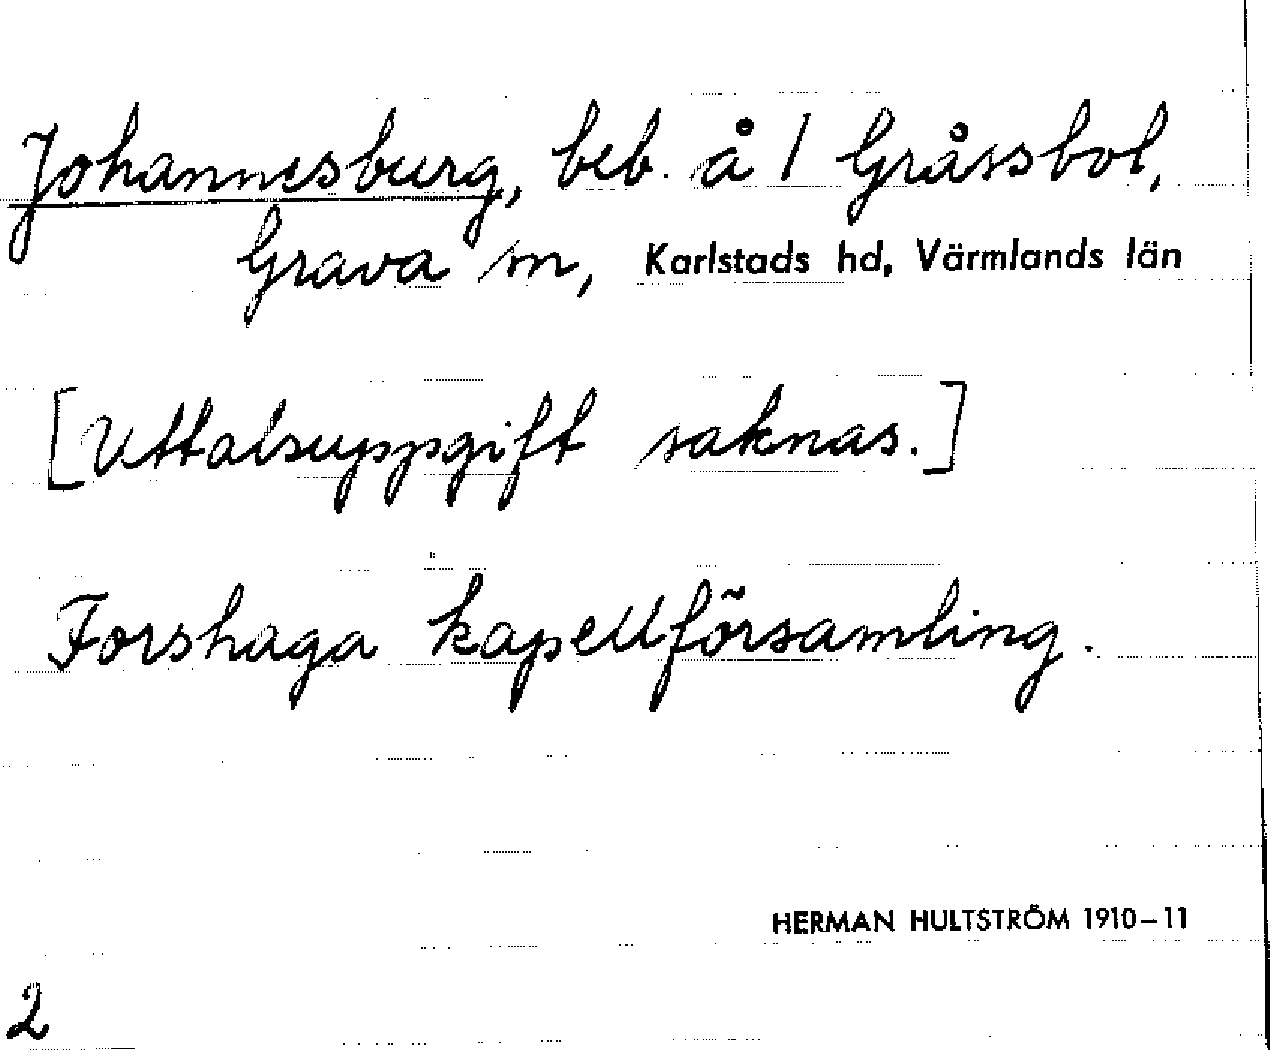 Johannesburg, beb. å 1 Gråssbol,
Grava sn, Karlstads hd, Värmlands län
[Uttalsuppgift saknas.]
Forshaga kapellförsamling.
HERMAN HULTSTRÖM 1910–11
2